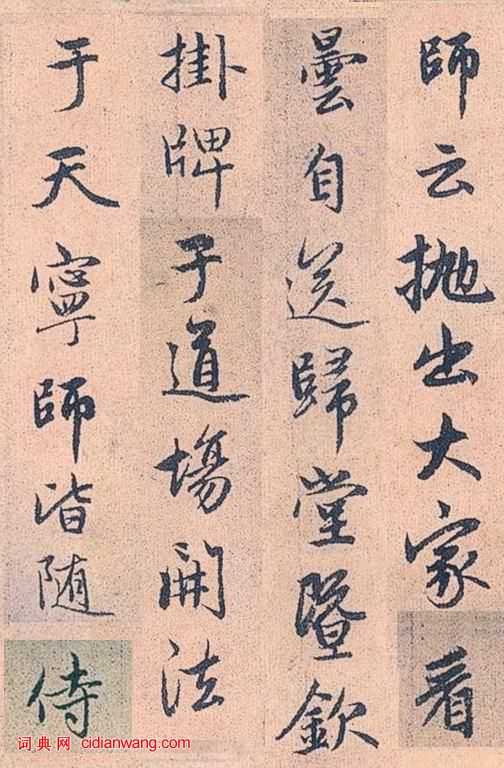 師云抛出大家看
曇自送歸堂暨欽
掛牌于道場開法
于天寧師皆随侍
词典网 cidianwang.com